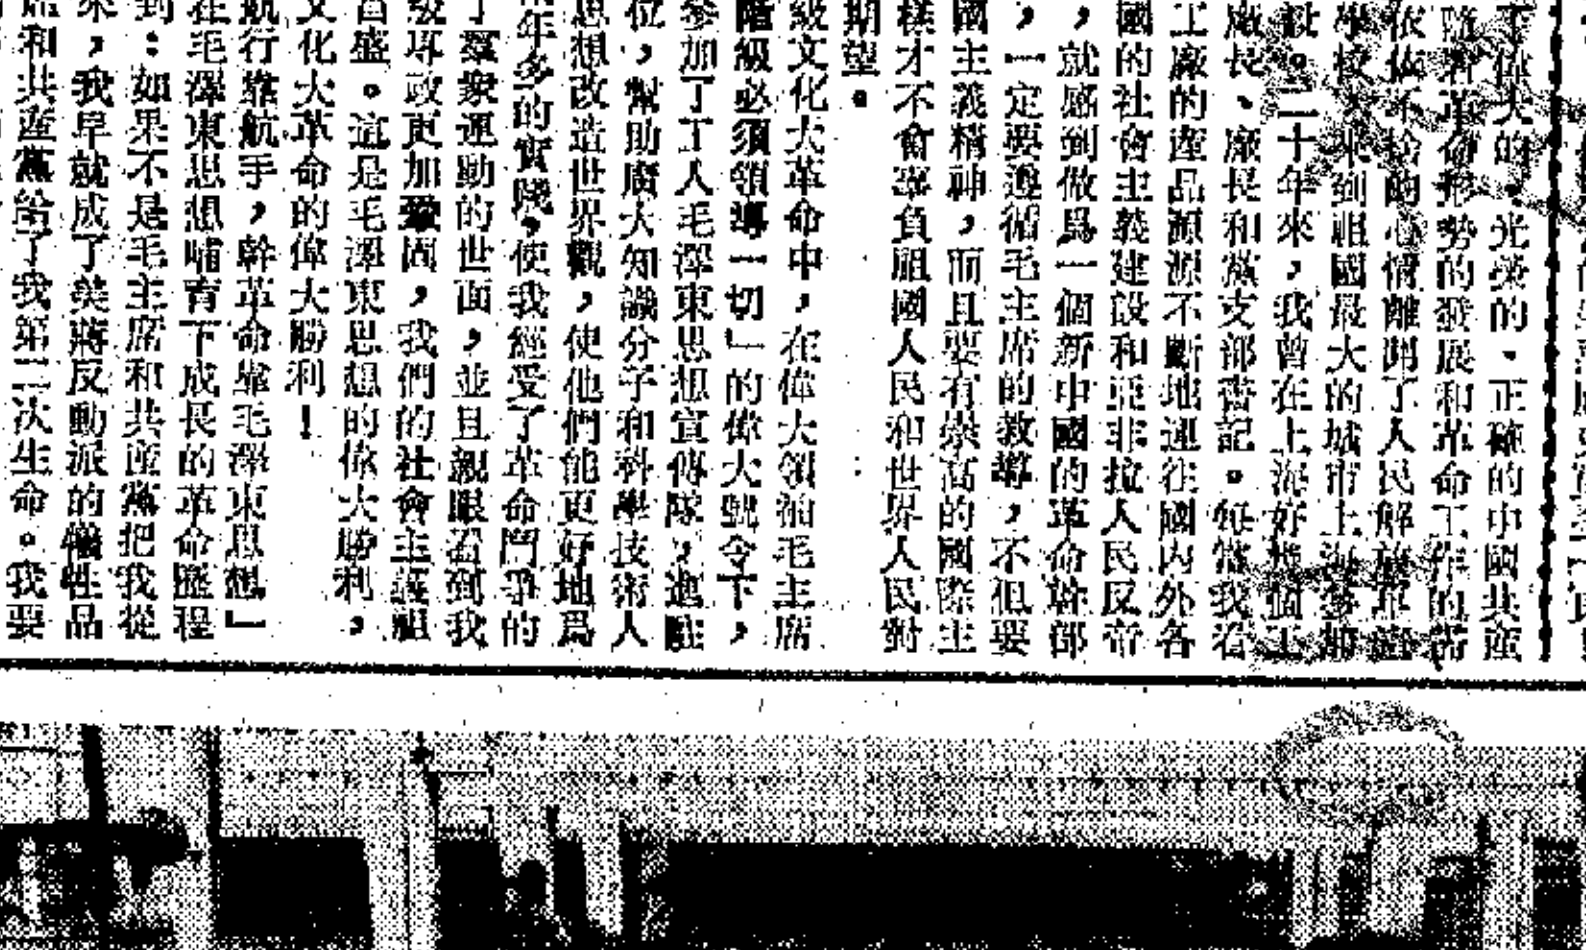 偉大的、光榮的、正確的中國共產
隨着革命形勢的發展和革命工作的需
依依不捨的心情離開了人民解放軍
學校，來到祖國最大的城市上海參加
設。二十年來，我曾在上海好幾個工
廠長、廠長和黨支部書記。每當我看
工廠的產品源源不斷地運往國內外各
國的社會主義建設和亞非拉人民反帝
，就感到做爲一個新中國的革命幹部
，一定要遵循毛主席的教導，不但要
國主義精神，而且要有崇高的國際主
樣才不會辜負祖國人民和世界人民對
期望。
級文化大革命中，在偉大領袖毛主席
階級必須領導一切」的偉大號令下，
參加了工人毛澤東思想宣傳隊，進駐
位，幫助廣大知識分子和科學技術人
思想改造世界觀，使他們能更好地爲
年多的實踐，使我經受了革命鬥爭的
了羣衆運動的世面，並且親眼看到我
級專政更加鞏固，我們的社會主義祖
昌盛。這是毛澤東思想的偉大勝利，
文化大革命的偉大勝利！
航行靠航手，幹革命靠毛澤東思想」
在毛澤東思想哺育下成長的革命歷程
到：如果不是毛主席和共產黨把我從
來，我早就成了美蔣反動派的犧牲品
席和共產黨給了我第二次生命。我要